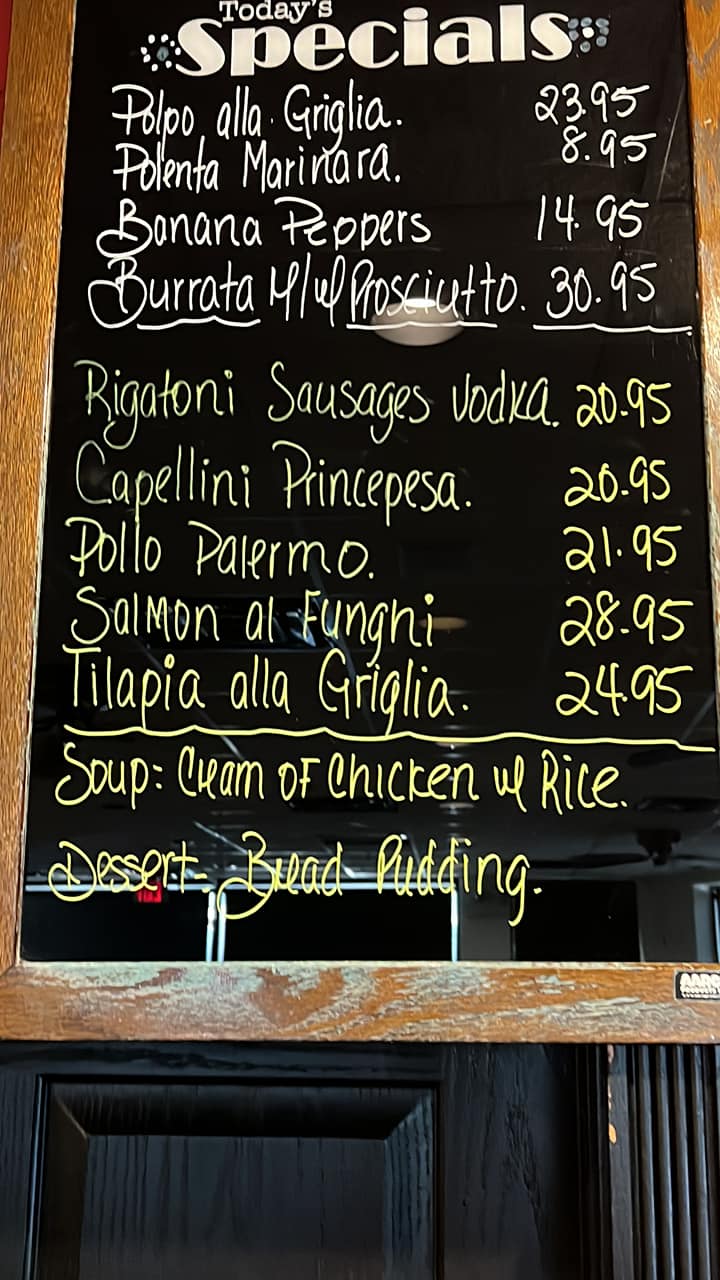 Today's
Specials
Polpo alla Griglia. 23.95
Polenta Marinara. 8.95
Banana Peppers 14.95
Burrata M/w/ Prosciutto. 30.95
Rigatoni Sausages Vodka. 20.95
Capellini Princepesa. 20.95
Pollo Palermo. 21.95
Salmon al Funghi 28.95
Tilapia alla Griglia. 24.95
Soup: Cream of Chicken w/ Rice.
Dessert- Bread Pudding.